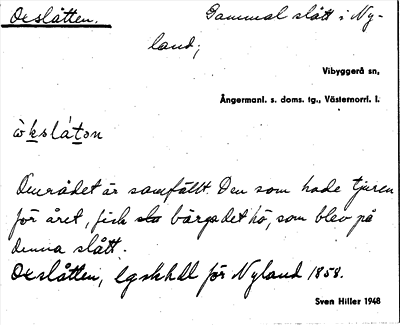 Oxslåtten.
Gammal slått i Ny-
land;
Vibyggerå sn,
Ångermanl. s. doms. tg., Västernorrl. l.
ò̀kslátən
Området är samfällt. Den som hade tjuren
för året, fick sla bärgadet hö, som blev på
denna slått.
Oxslåtten, lgskhdl för Nyland 1858.
Sven Hiller 1948